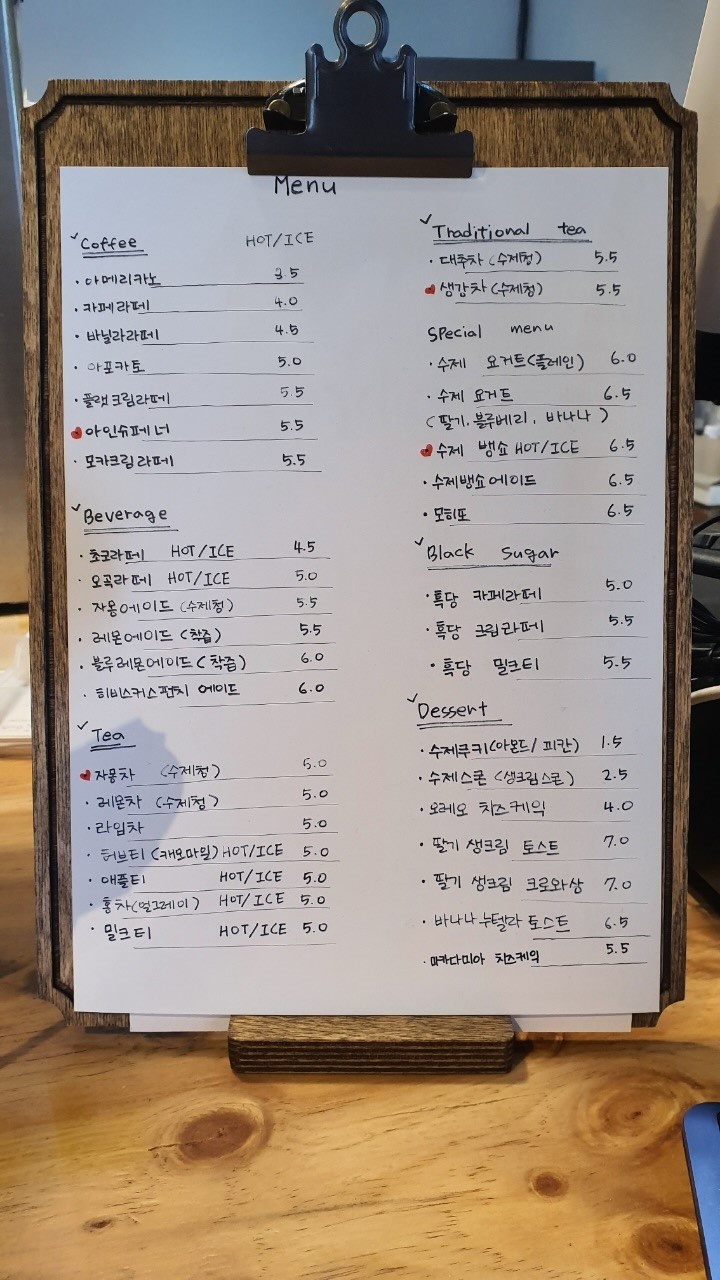 Menu
Coffee HOT/ICE
· 아메리카노 3.5
· 카페라떼 4.0
· 바닐라라떼 4.5
· 아포카토 5.0
· 플랫크림라떼 5.5
아인슈페너 5.5
· 모카크림라떼 5.5
Beverage
· 초코라떼 HOT/ICE 4.5
· 오곡라떼 HOT/ICE 5.0
· 자몽에이드 (수제청) 5.5
· 레몬에이드 (착즙) 5.5
· 블루레몬에이드 (착즙) 6.0
· 히비스커스펀치 에이드 6.0
Tea
자몽차 (수제청) 5.0
· 레몬차 (수제청) 5.0
· 라임차 5.0
· 허브티 (캐모마일) HOT/ICE 5.0
· 애플티 HOT/ICE 5.0
· 홍차(얼그레이) HOT/ICE 5.0
· 밀크티 HOT/ICE 5.0
Traditional tea
· 대추차 (수제청) 5.5
생강차 (수제청) 5.5
Special menu
· 수제 요거트(플레인) 6.0
· 수제 요거트 6.5
(딸기. 블루베리. 바나나)
수제 뱅쇼 HOT/ICE 6.5
· 수제뱅쇼에이드 6.5
· 모히또 6.5
Black Sugar
· 흑당 카페라떼 5.0
· 흑당 크림라떼 5.5
· 흑당 밀크티 5.5
Dessert
· 수제쿠키(아몬드/피칸) 1.5
· 수제스콘 (생크림스콘) 2.5
· 오레오 치즈케익 4.0
· 딸기 생크림 토스트 7.0
· 딸기 생크림 크로와상 7.0
· 바나나누텔라 토스트 6.5
· 마카다미아 치즈케익 5.5